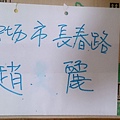 场市長春路
趙 麗